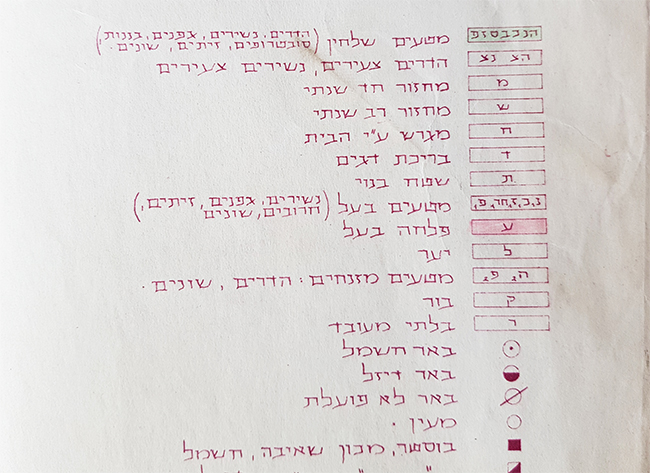 הנגבסזפ מטעים שלחין (הדרים, נשירים, גפנים, בננות,
סובטרופים, זיתים, שונים.)
הצ נצ הדרים צעירים, נשירים צעירים
מ מחזור חד שנתי
ש מחזור רב שנתי
ח מגרש ע״י הבית
ד בריכת דגים
ת שטח בנוי
נ,ג,ז,חר,פ, מטעים בעל (נשירים, גפנים, זיתים,
חרובים, שונים)
ע פלחה בעל
ל יער
ה, פ, מטעים מזנחים: הדרים, שונים.
ק בור
ר בלתי מעובד
באר חשמל
באר דיזל
באר לא פועלת
מעין.
בוסטר, מכון שאיבה, חשמל